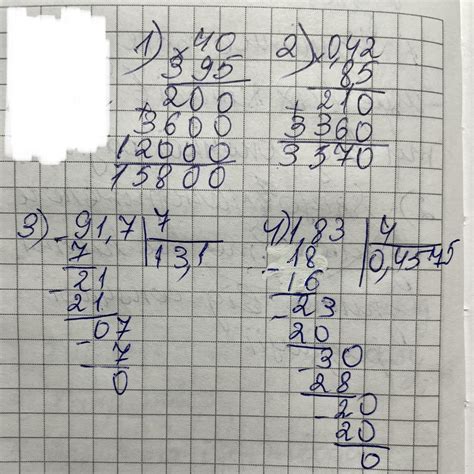 1) 40
× 395
200
+ 3600
12000
15800
2) × 0,42
85
210
+ 3360
3570
3) - 91,7 | 7
7 | 13,1
- 21
21
- 07
7
0
4) 1,83 | 4
- 18 | 0,4575
16
- 23
20
- 30
28
- 20
20
0